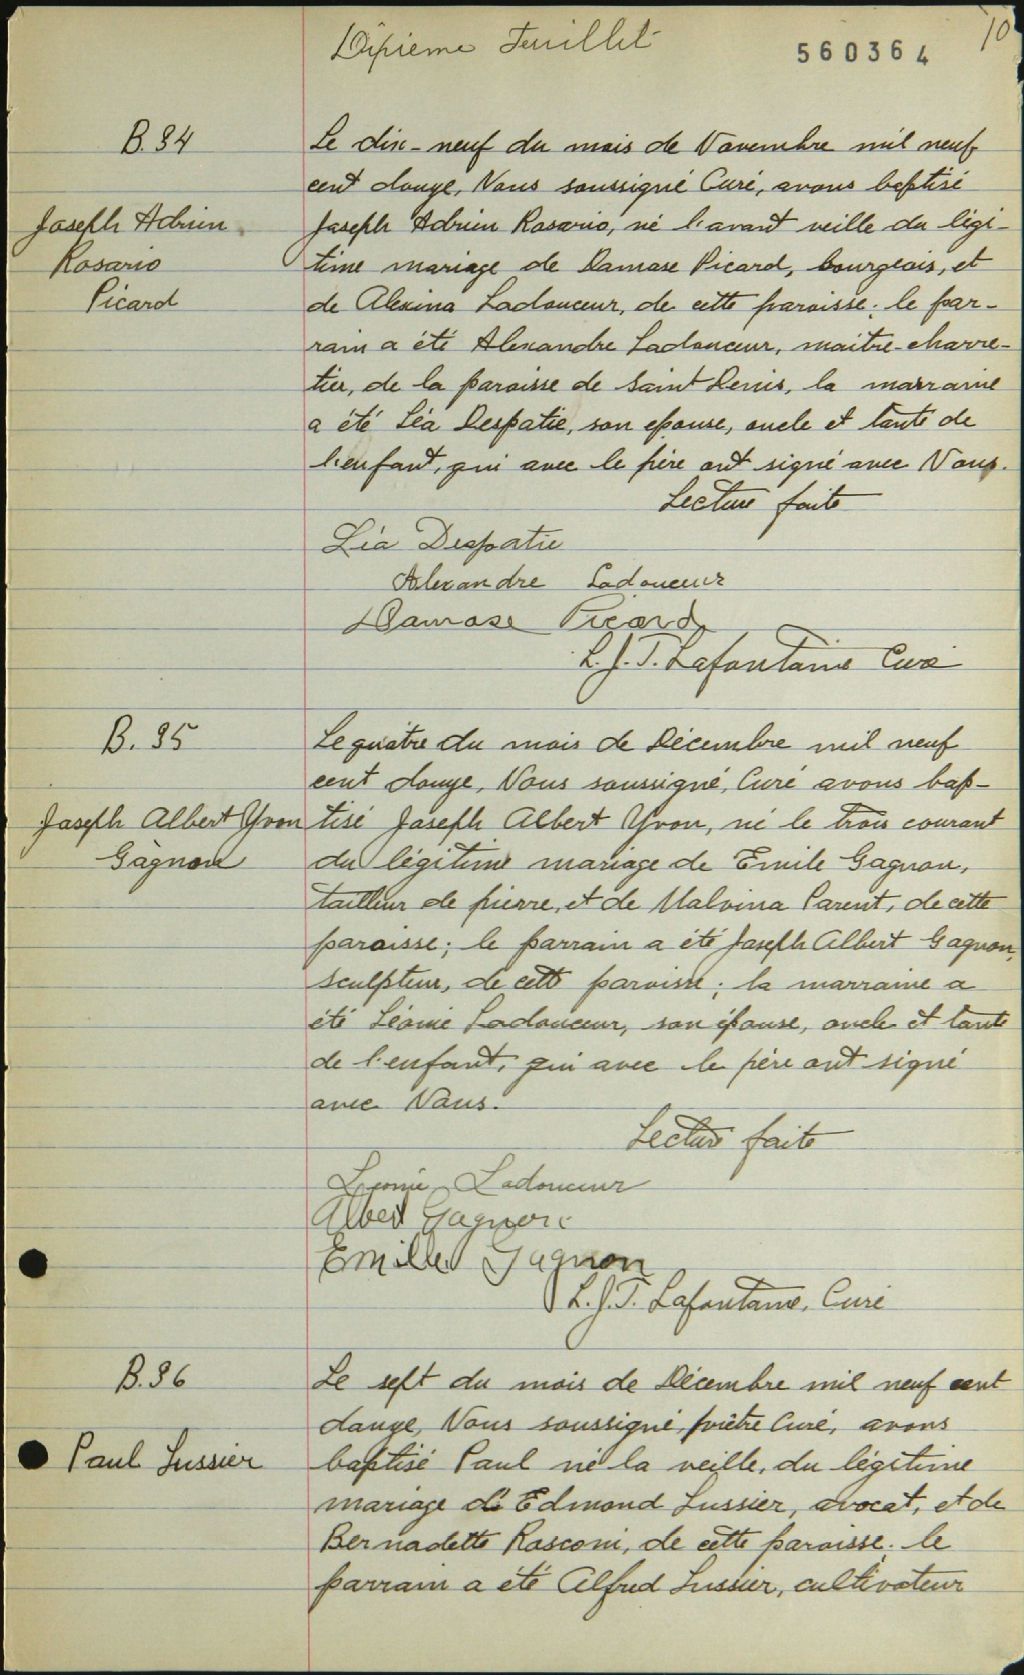 Dixième Feuillet
560364
10
B. 94
Joseph Adrien
Rosario
Picard
Le dix-neuf du mois de Novembre mil neuf
cent douze, Nous soussigné Curé, avons baptisé
Joseph Adrien Rosario, né l'avant veille du légi-
time mariage de Damase Picard, bourgeois, et
de Alexina Ladouceur, de cette paroisse; le par-
rain a été Alexandre Ladouceur, maitre-charre-
tier, de la paroisse de Saint Denis, la marraine
a été Léa Despatie, son epouse, oncle et tante de
l'enfant, qui avec le père ont signé avec Nous.
Lecture faite
Léa Despatie
Alexandre Ladouceur
Damase Picard
L. J. T. Lafontaine Curé
B. 95
Joseph Albert Yvon
Gagnon
Le quatre du mois de Décembre mil neuf
cent douze, Nous soussigné, Curé avons bap-
tisé Joseph Albert Yvon, né le trois courant
du légitime mariage de Emile Gagnon,
tailleur de pierre, et de Malvina Parent, de cette
paroisse; le parrain a été Joseph Albert Gagnon,
sculpteur, de cette paroisse; la marraine a
été Léonie Ladouceur, son épouse, oncle et tante
de l'enfant, qui avec le père ont signé
avec Nous.
Lecture faite
Leonie Ladouceur
Albert Gagnon
Emille Gagnon
L. J. T. Lafontaine, Curé
B. 96
Paul Lussier
Le sept du mois de Décembre mil neuf cent
douze, Nous soussigné, prêtre Curé, avons
baptisé Paul né la veille, du légitime
mariage de Edmond Lussier, avocat, et de
Bernadette Rasconi, de cette paroisse; le
parrain a été Alfred Lussier, cultivateur